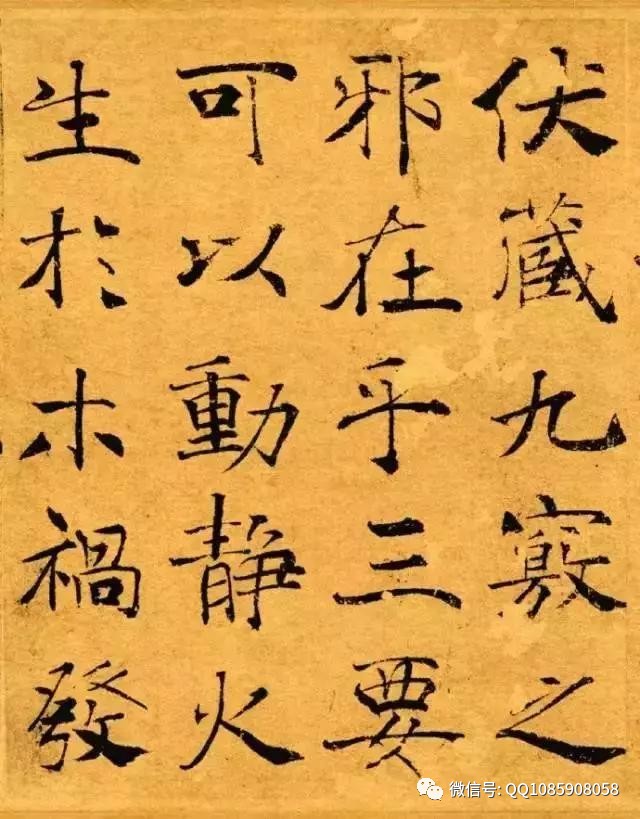 伏藏九竅之
邪在乎三要
可以動静火
生於木禍發
微信号: QQ1085908058